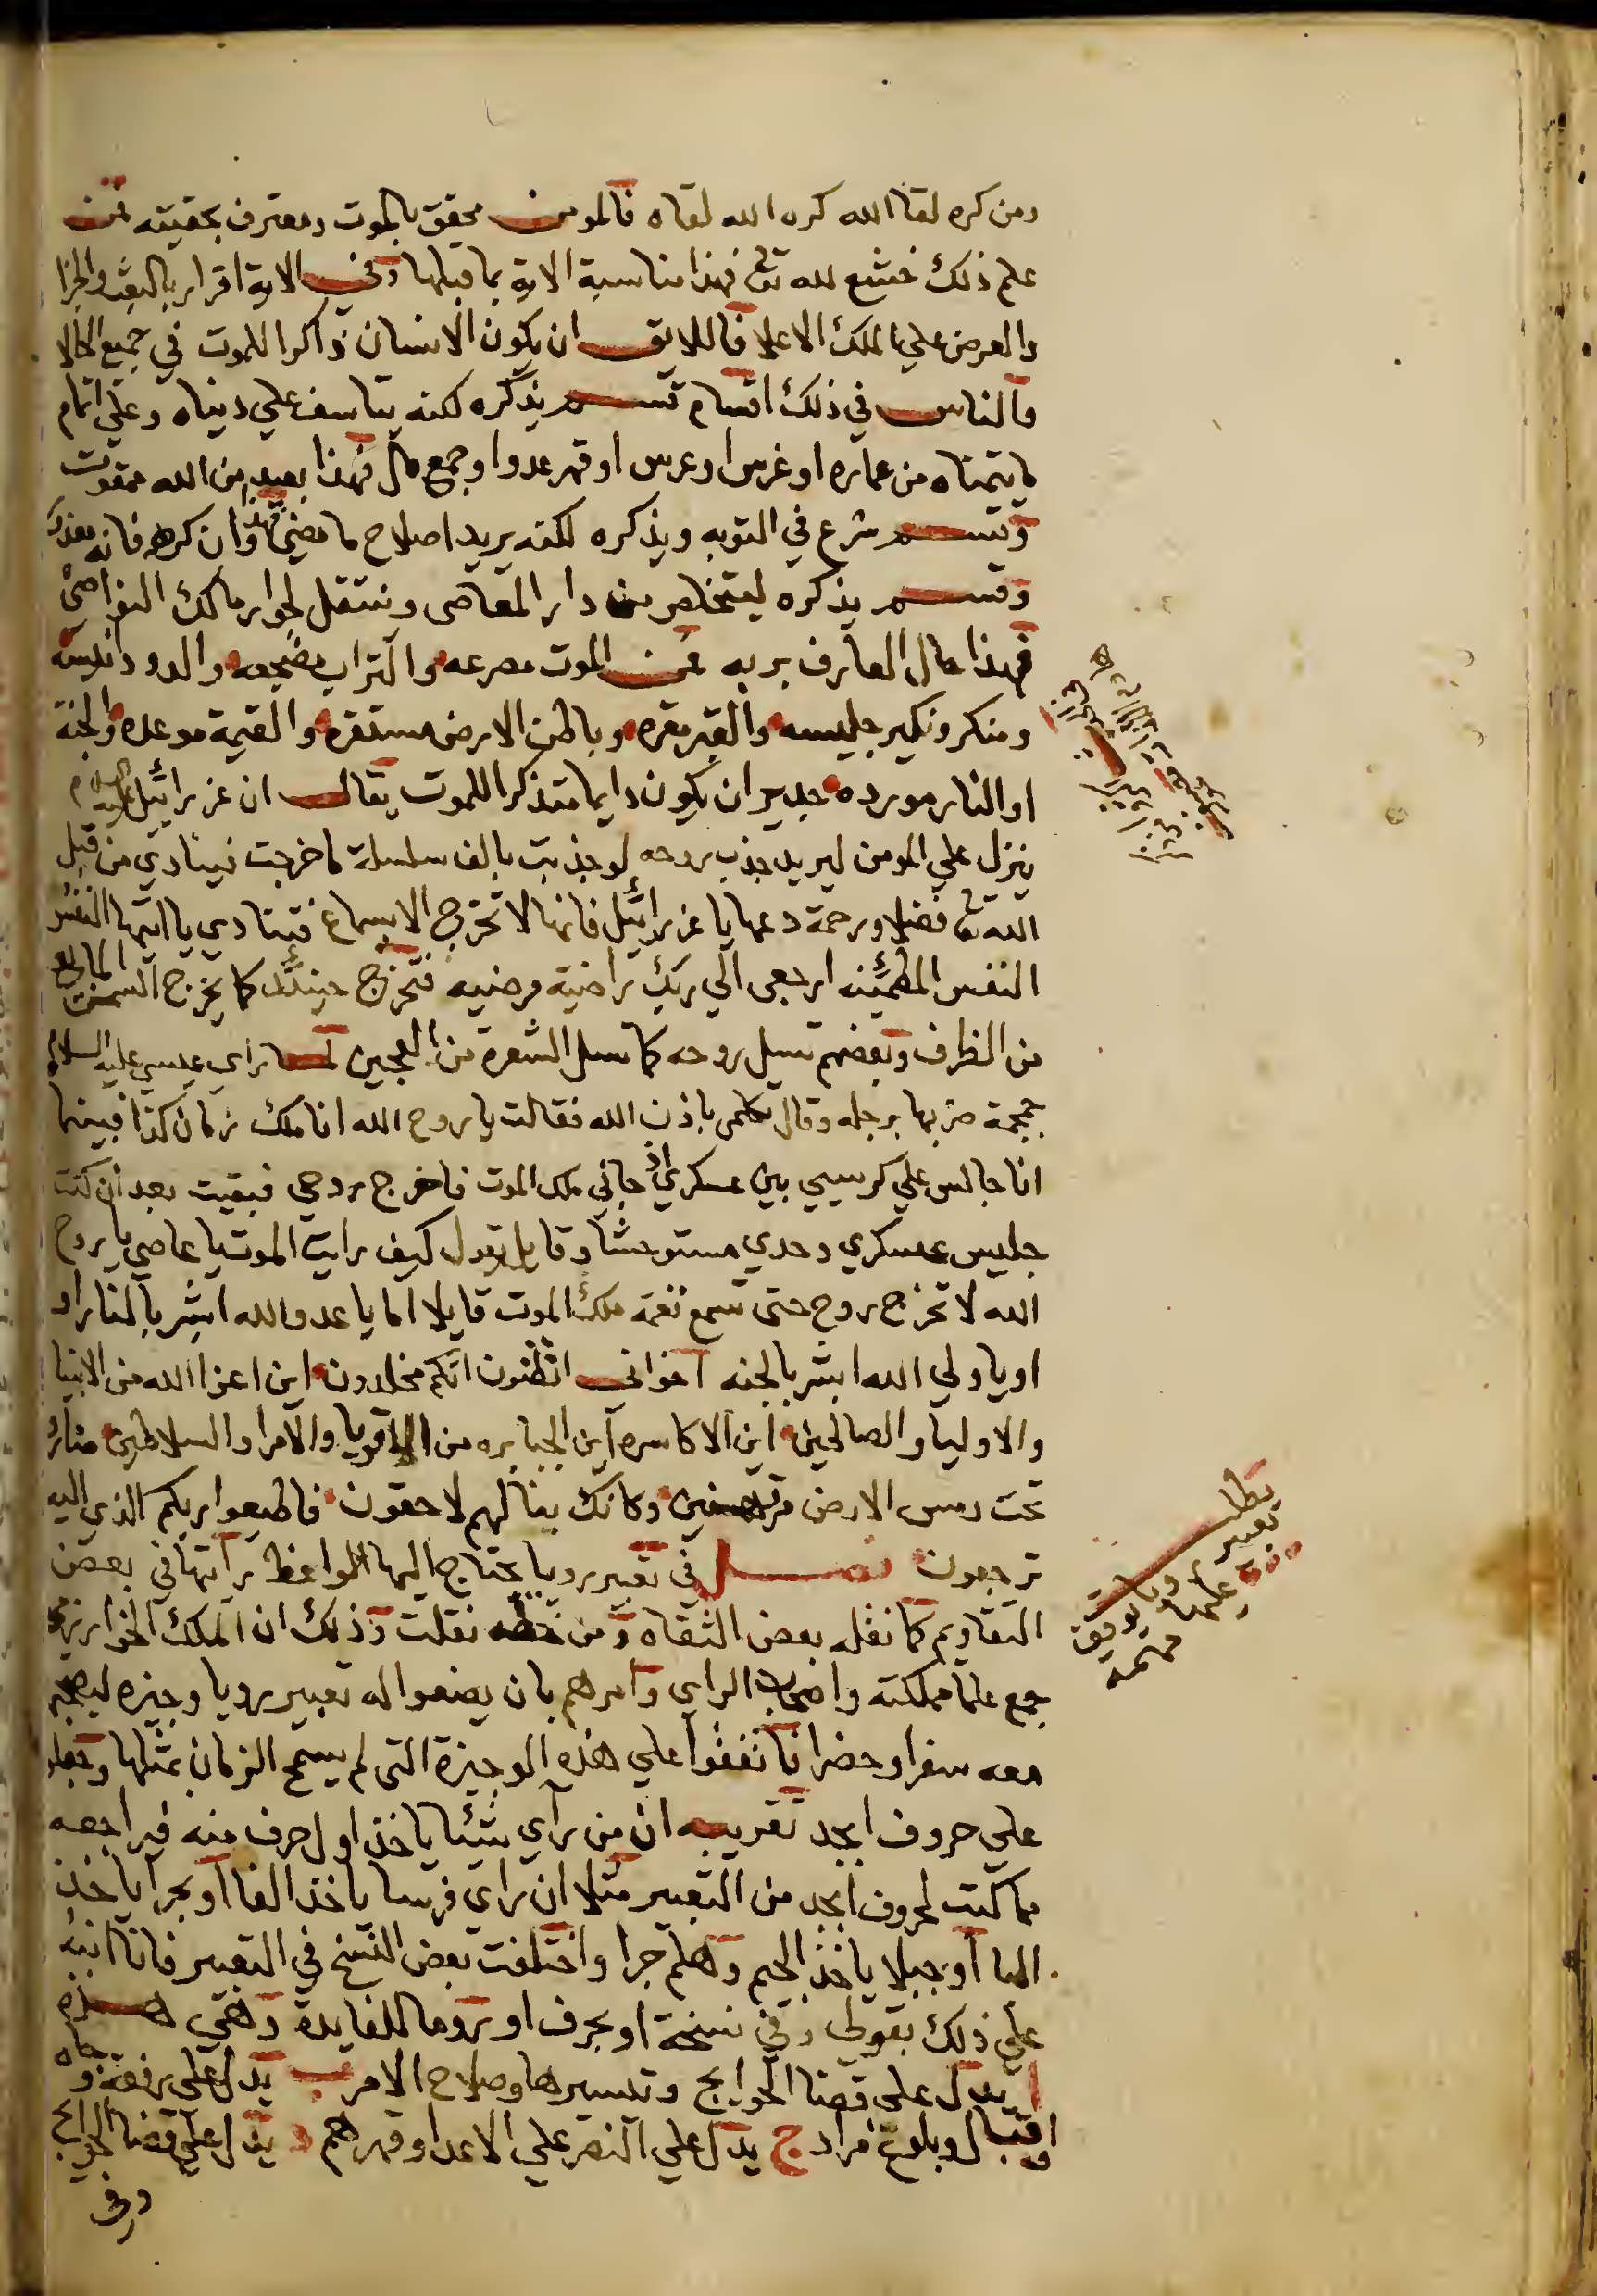 ومن كره لقا الله كره الله لقاه فالمومن محقق بالموت ومعترف بحقيته فمن
علم ذلك خشع لله تع فهذا مناسبة الاية بما قبلها وفي الاية اقرار بالبعث والجزا
والعرض علي الملك الاعلا فاللايق ان يكون الانسان ذاكرا للموت في جميع الحالا
والناس في ذلك اقسام قسم يذكره لكنه يتاسف علي دنياه وعلي اتمام
ما يتمناه من عماره او غرس او عرس او قهر عدوا وجمع مال فهذا بعيد من الله ممقوت
وقسم شرع في التوبه ويذكره لكنه يريد اصلاح ما مضي فهذا وان كرهه فانه معذور
وقسم يذكره ليتخلص من دار المعاصى وينتقل لجوار مالك النواصي
فهذا حال العارف بربه فمن الموت مصرعه والتراب مضجعه والدود انيسه
ومنكر ونكير جليسه والقبر مقره وباطن الارض مستقره والقيمة موعده والجنة
او النار مورده جدير ان يكون دايما متذكرا للموت يقال ان عزرائيل عليه السلام
ينزل علي المومن ليريد جذب روحه لو جذبت بالف سلسلة ما خرجت فينادي من قبل
الله تع فضلا ورحمة دعها يا عزرائيل فانها لا تخرج الا بسماع فينادي يا ايتها النفس
النفس المطمئنه ارجعى الي ربك راضية مرضيه فتخرج حينئذ كما يخرج السمن المايع
من الظرف وبعضهم تسيل روحه كما تسل الشعرة من العجين لما راي عيسي عليه السلام
جمجمة ضربها برجله وقال تكلمى باذن الله فقالت يا روح الله انا ملك زمان كذا فبينما
انا جالس علي كرسيي بين عسكري اذ جاني ملك الموت فاخرج روحي فبقيت بعد ان كنت
جليس عسكري وحدي مستوحشا وقايل يقول كيف رايت الموت يا عاصي يا روح
الله لا تخرج روح حتى تسمع نغمة ملك الموت قايلا اما يا عدو الله ابشر بالنار او
او يا ولي الله ابشر بالجنه اخواني اتظنون انكم مخلدون اين اعزا الله من الانبيا
والاوليا والصالحين اين الاكاسره اين الجبابره من الاقويا والامرا والسلاطين صاروا
تحت رمس الارض مرتهنين وكانك بنا لهم لاحقون فاطيعوا ربكم الذي اليه
ترجعون فصل في تعبير رويا يحتاج اليها المواعظ رايتها في بعض
التقاويم كما نقله بعض الثقاه ومن خطه نقلت وذلك ان الملك الخوارزمي
جمع علما مملكته واصحاب الراي وامرهم بان يضعوا له تعبير رويا وجيزه ليصحبه
معه سفرا وحضرا فاتفقوا علي هذه الوجيزة التى لم يسمح الزمان بمثلها وجعلو
علي حروف ابجد تقريبه ان من راي شئيا ياخذ اول حرف منه فيراجعه
مما كتب لحروف ابجد من التعبير مثلا ان راي فرسا ياخذ الفا او بحرا ياخذ
البا او جبلا ياخذ الجيم وهلم جرا واختلفت بعض النسخ في التعبير فانا انبه
علي ذلك بقولي وفي نسخة او بحرف او روما للفايدة وهي هذه
ا يدل على قضا الحوايج وتيسيرها وصلاح الامر ب يدل علي رفعة وجاه
واقبال وبلوغ مراد ج يدل علي النصر علي الاعدا وقهرهم د يدل علي قضا الحوايج
وفى
تعبير
مهمه